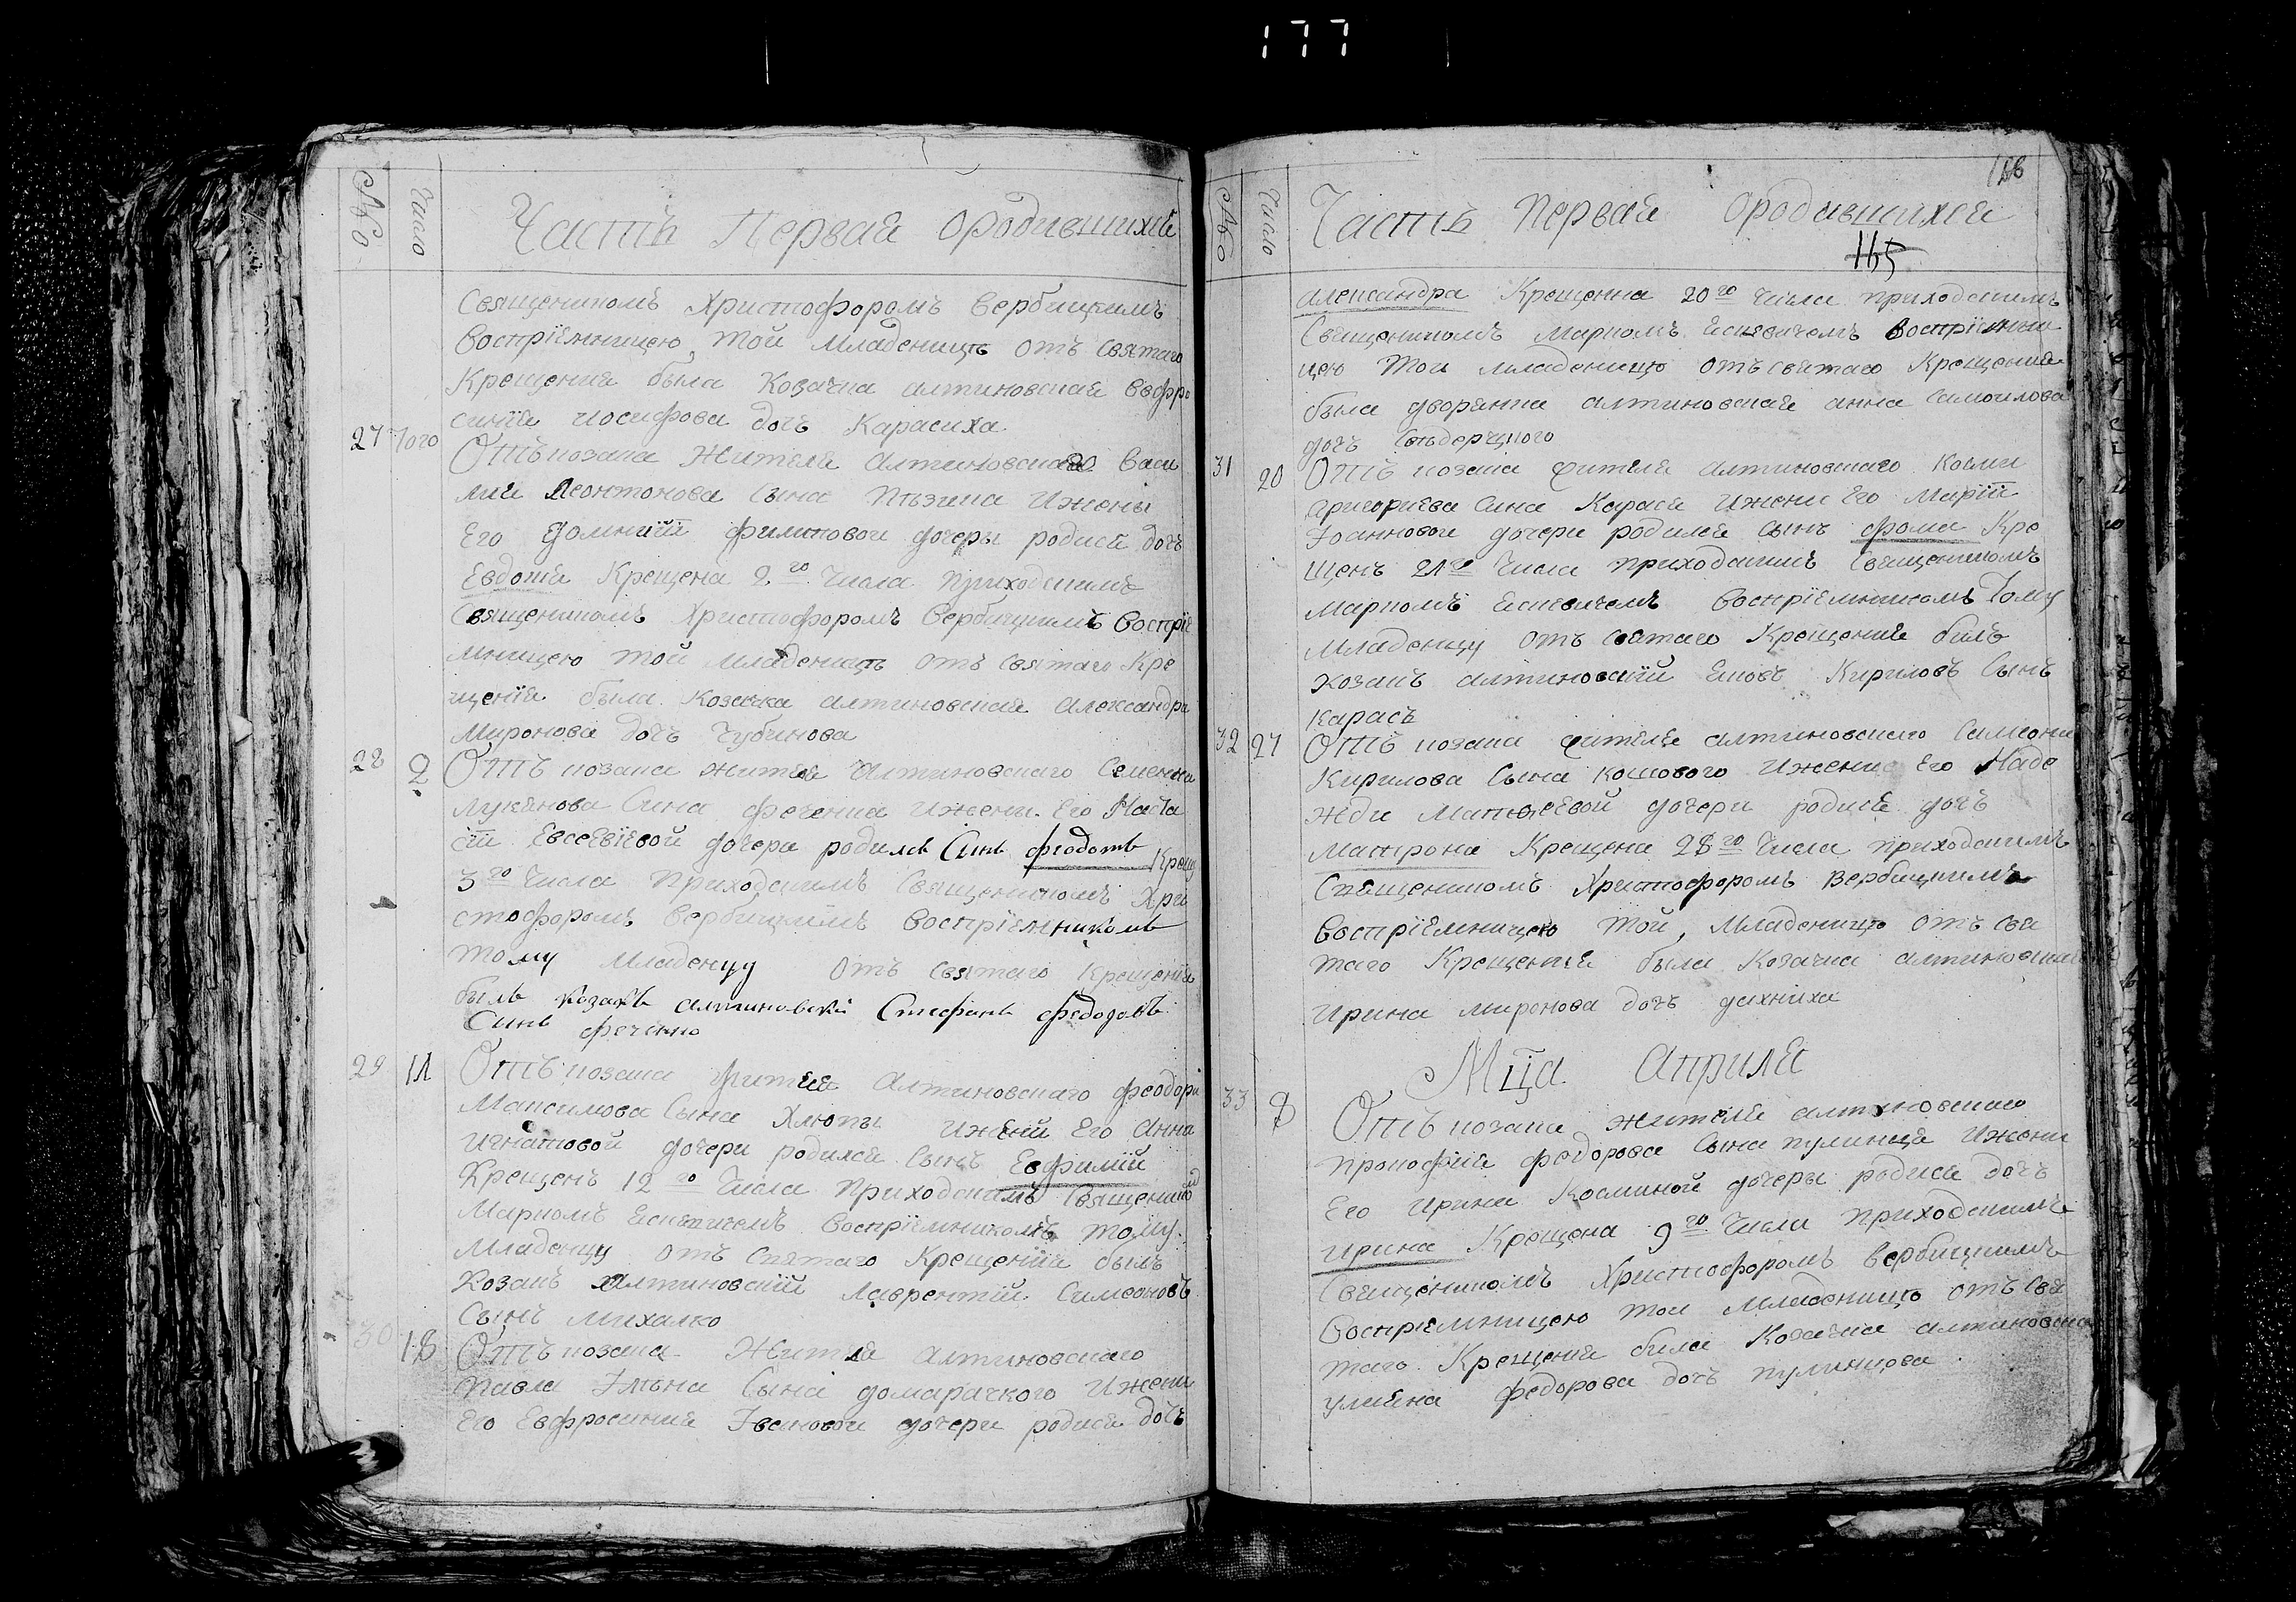 177
№о
Число
Часть Первая ородившихся
Священикомъ Христофоромъ Вербицкимъ
воспріемницею той младеницѣ отъ святаго
Крещенія была Козачка алтиновская Евфро
синія иосифова дочь Карасиха
27 Того Отъ козака Жителя Алтиновскаго Васи
лия Леонтонова сына Пѣзика ижены
Его Домникіи филиповои дочеры родися дочь
Евдокія Крещена 2го Числа приходскимъ
Священикомъ Христофоромъ Вербицкимъ воспріе
мницею той младеницѣ отъ святаго Кре
щенія была Козачка алтиновская Александра
Миронова дочь Чубинова
28 2 Отъ козака жителя Алтиновскаго Семена
Лукянова Сина Феченка ижены Его Наста
сіи Евсеевіевой дочера родился Синъ феодотъ Крещ
3го Числа Приходскимъ Священикомъ Хри
стофоромъ Вербицкимъ воспріемникомъ
тому младенцу отъ святаго Крещенія
былъ козакъ алтиновскій Стефанъ федодовъ
Синъ феченко
29 11 Отъ козака жителя Алтиновскаго Феодора
Максимова Сына Хлюпы иженй Его Анна
Игнатовой дочери родился Сынъ Евфимій
Крещенъ 12го Числа Приходскимъ Священико
Маркомъ воспріемникомъ тому
Младенцу отъ святаго Крещенія былъ
Козакъ Алтиновскій Лаврентій Симеоновъ
Сынъ михалко
30 18 Отъ козака Жителя алтиновскаго
Павла Сына домарацкого ижени
Его Евфросиния Івановои дочери родися дочь
№о
Число
166
Часть Первая ородившихся
165
александра Крещенна 20го Числа приходскимъ
Священикомъ Маркомъ воспріемни
цею тои младеницѣ отъ святаго Крещения
была дворянка алтиновская анна самоилова
дочь
31 20 Отъ козака жителя алтиновскаго Космы
григориева Сина Карася ижени Его Маріи
Іоанновои дочери родился сынъ фома Кре
щенъ 21го Числа приходскимъ священикомъ
Маркомъ воспріемникомъ Тому
младенцу отъ святаго Крещения билъ
козакъ алтиновскій Кириловъ Сынъ
карась
32 27 Отъ козака жителя алтиновскаго Симеона
Кирилова Сына кошового ижени Его Наде
жди Матѳеевой дочери родися дочь
Матрона Крещена 28го Числа приходскимъ
Священикомъ Христофоромъ Вербицкимъ
воспріемницею той младеницѣ отъ свя
таго Крещения была Козачка алтиновская
ирина миронова дочь дахниха
Мца Априля
33 8 Отъ козака жителя алтиновскаго
прокофія федорова Сына пулинца ижени
Его ирини Косминой дочеры родися дочь
ирина Крещена 9го Числа приходскимъ
Священикомъ Христофоромъ вербицкимъ
воспріемницею тои младеницѣ отъ свя
таго Крещения била Козачка алтиновска
улияна федорова дочь пулинцова